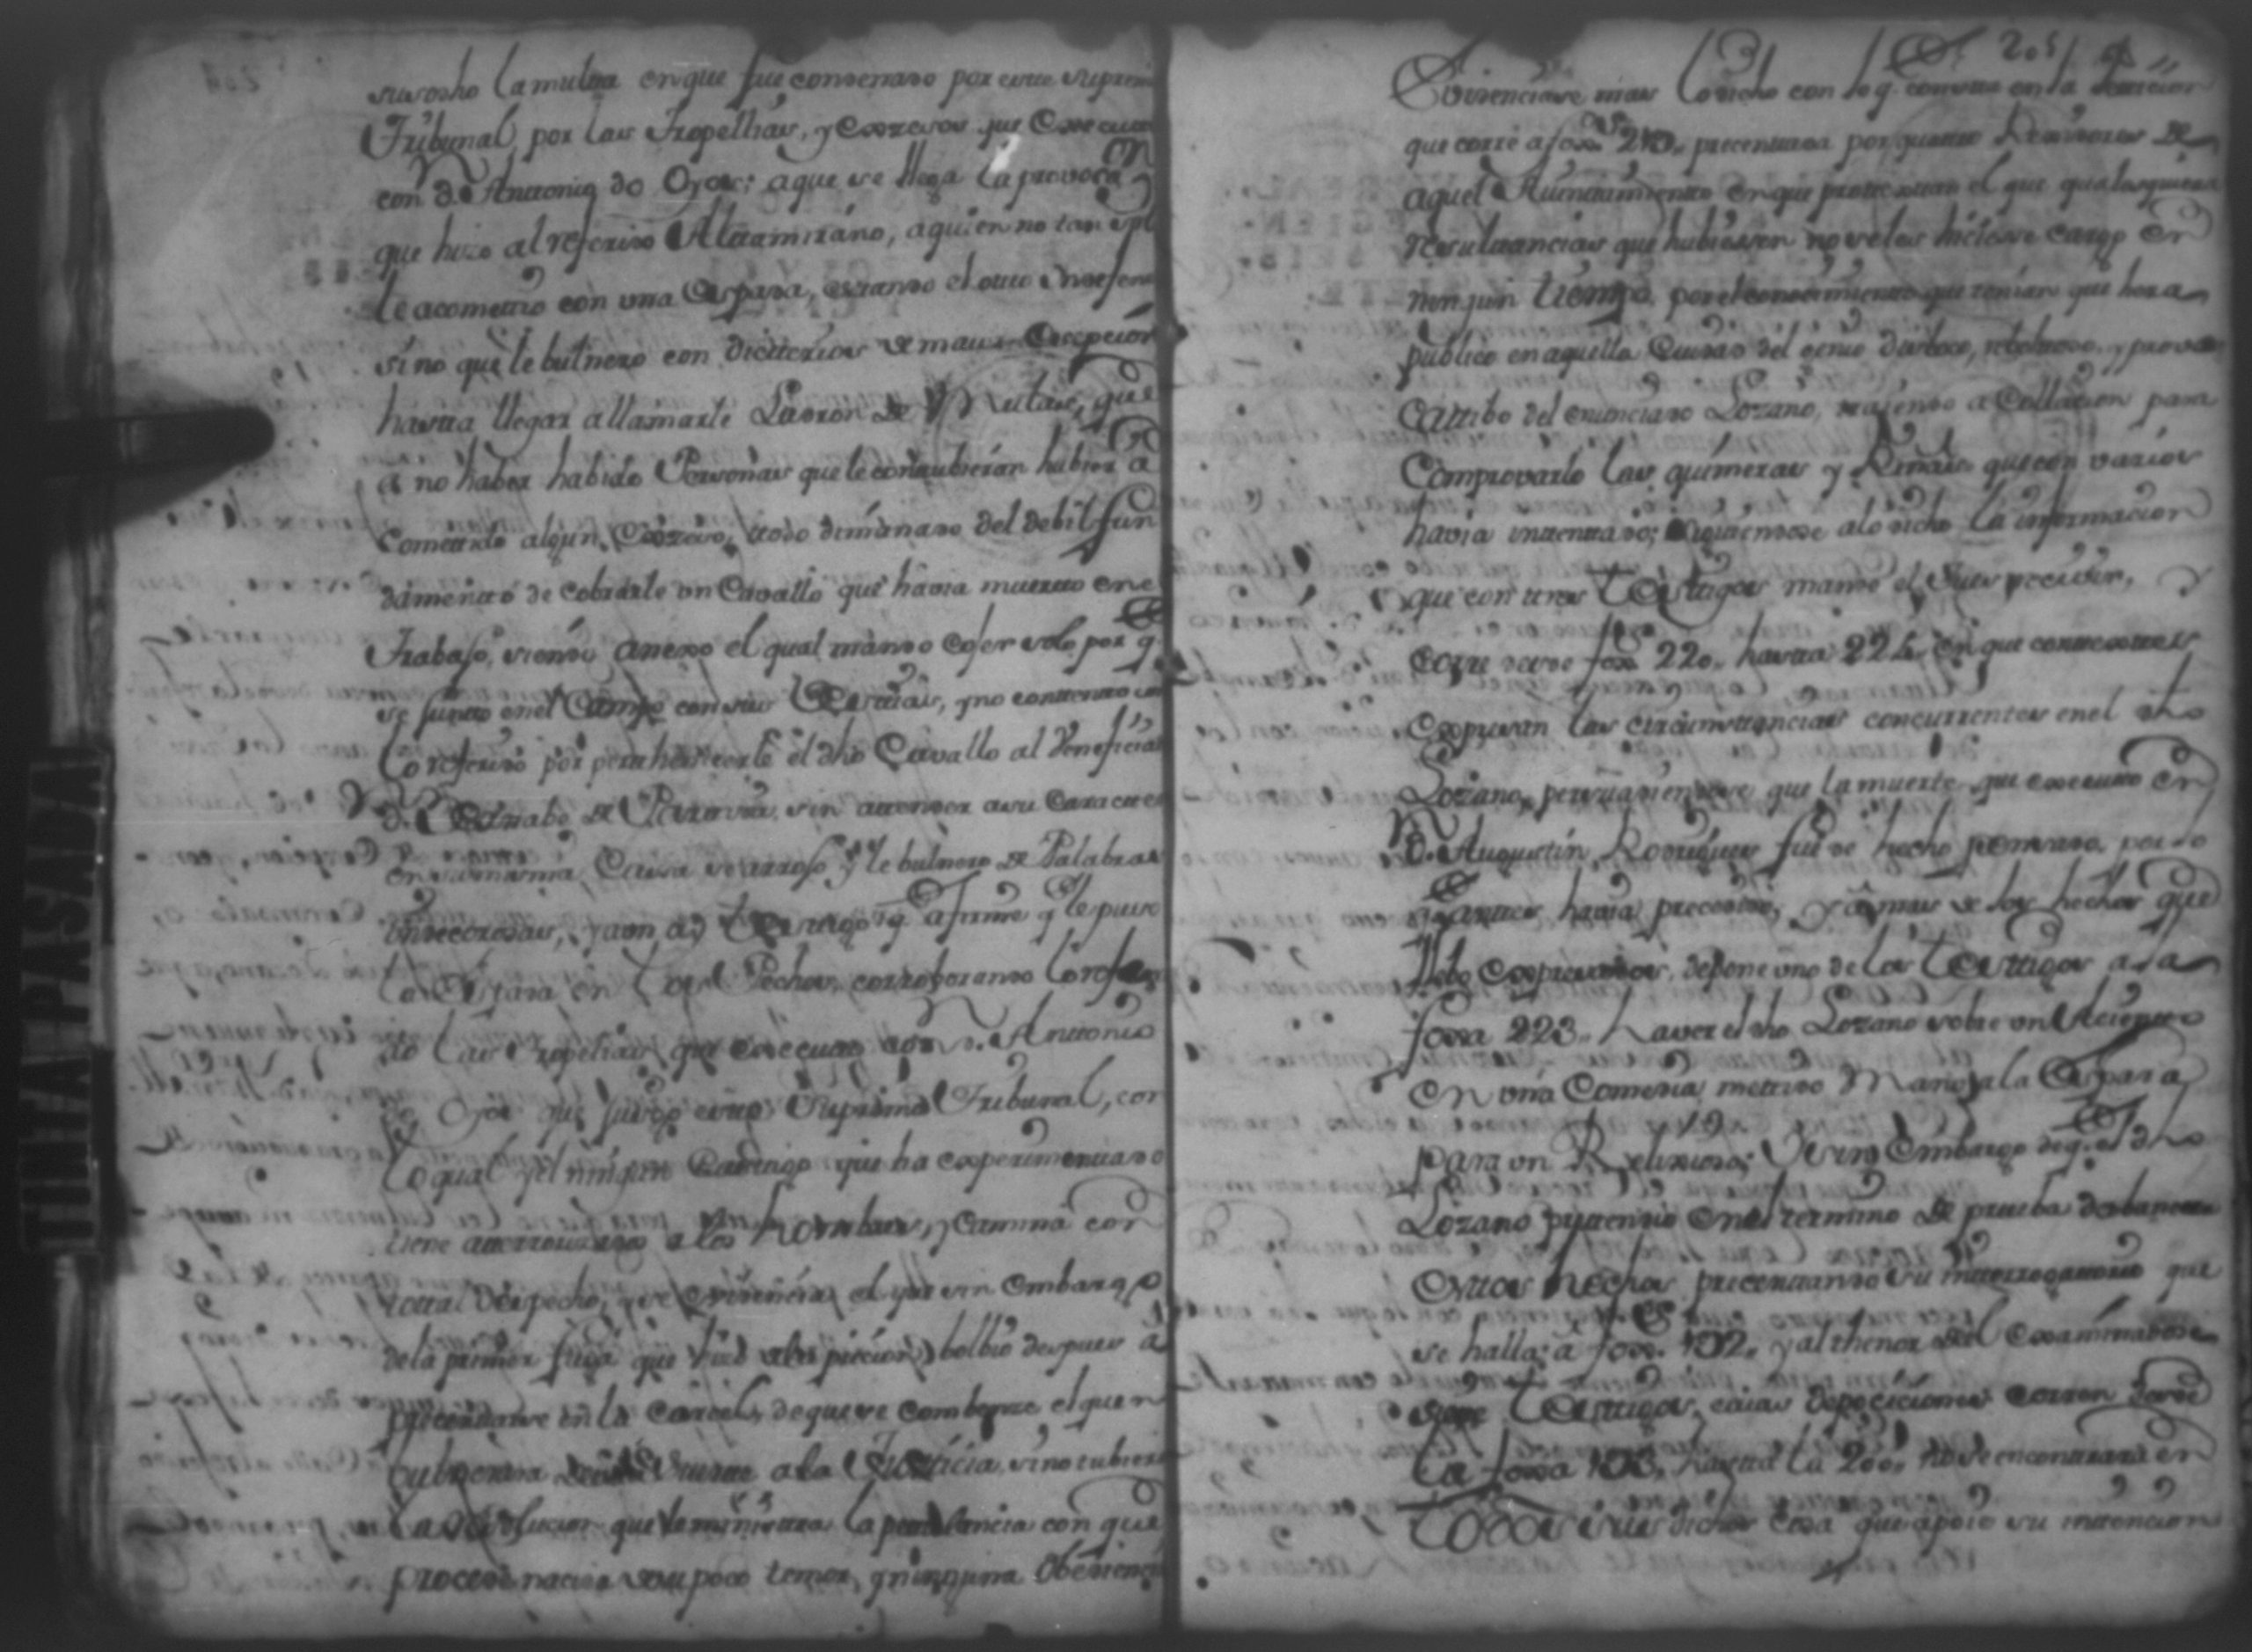 susodho la multa en que fue condenado por este Supremo
Tribunal por las Tropelias, y Excesos que Executó
con Dn. Antonio de Oyos: a que se llega la provocan
que hizo al referido Altamirano, a quien no tan solo
le acometió con una Espada, estando el otro indefenso
sino que le bulneró con dicterios de mala Excepción
hasta llegar a llamarle Ladron de Mulas, que
a no haber habido Personas que le contubieran hubiera
Cometido algun Exceso, todo dimanado del debil fun
damento de cobrarle un Cavallo que havia muerto en el
Trabajo, siendo ageno el qual mando cojer solo por q.
se junto en el Campo con sus Bestias, y no contento con
lo referido por pertenecerle el dho Cavallo al Beneficiado
Dn. Bernabe de
en su misma Casa se arrojó y le bulneró de Palabras
indecorosas, y aun ay Testigo q. afirme q. le puso
la Espada en los Pechos, corroborando lo referi
do las Tropelias que executó con Dn. Antonio
de Oyos que juzgó este Supremo Tribunal, con
lo qual y el ningun Castigo que ha experimentado
tiene atemorizados a los hombres, y camina con
total despecho, y se evidencia el que sin embargo
de la primer fuga que hizo de la pricion bolbió despues a
precentarse en la Carcel, de que se combenze el que n
pulsaria a la Justicia, sino tubiera
la que le ministra la con que
procede nacida de su poco temor, y ninguna Obediencia
131 205
Evidenciase mas lo dicho con lo q. consta en la peticion
que corre a foxs 210. precentada por quatro Rexidores de
aquel Aiuntamiento en que protextan el que qualesquiera
resultancias que hubiesen no se les hiciese cargo en
ningun tiempo, por el conocimiento que tenian que hera
publico en aquella Ciudad del genio discolo, reboltoso, y provo
cativo del enunciado Lozano, trajendo a Collacion para
Comprovarlo las quimeras y Riñas que con varios
havia intentado; siguiendose a lo dicho la informacion
que con tres Testigos mando el Juez recivir, y
corre desde foxs 220. hasta 225. en que contestes
Expresan las circunstancias concurrentes en el dho
Lozano, persuadiendose que la muerte que executó en
Dn. Augustin Rodriguez fue de hecho penzado, por lo
q. antes havia precedido, y a mas de los hechos que
llebo Expresados, depone uno de los Testigos a la
foxa 223. haver el dho Lozano sobre un
en una Comedia metido Mano a la Espada
para un Relixioso; Y sin Embargo de q. el dho
Lozano pretendio en el termino de prueba desbanecer
estos hechos precentando su interrogatorio que
se halla a foxs 192. y al thenor del Examinados
siete Testigos, cuias depociciones corren desde
la foxa 193, hasta la 200, no se encontrara en
todos sus dichos cosa que apoie su intencion
TINTA PASADA